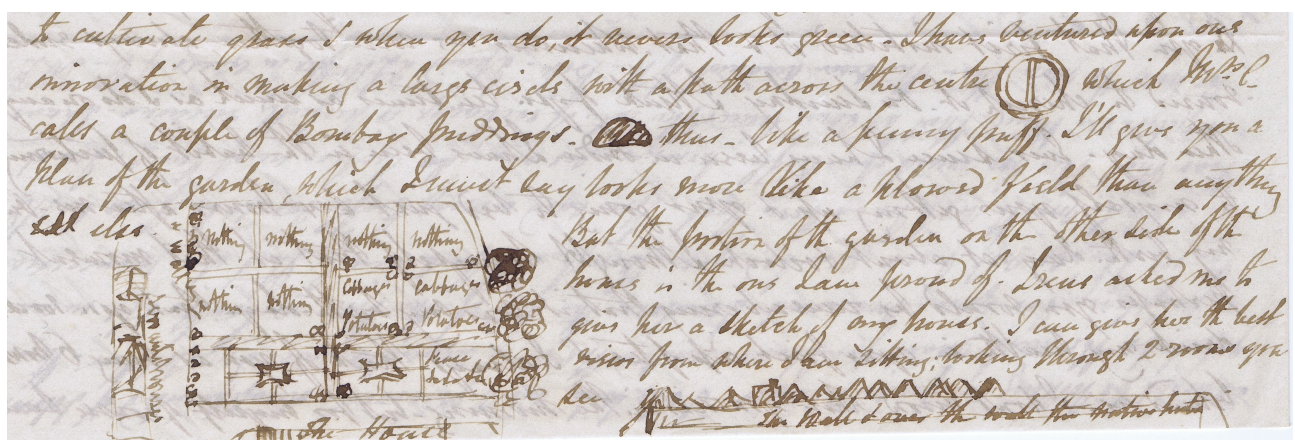 to cultivate grass & when you do, it never looks green - I have ventured upon one
innovation in making a large circle with a path across the centre which Mrs C-
calls a couple of Bombay puddings. thus - like a funny puff. I'll give you a
Plan of the garden, which I must say looks more like a plowed field than anything
else.
nothing nothing nothing nothing
nothing nothing cabbages cabbages
Potatoes Potatoes
The House
But the portion of the garden on the other side of the
house is the one I am proud of. Irene asked me to
give her a sketch of my house. I can give her the best
view from where I am sitting, looking through 2 rooms you
see
The Wall & over the wall the native huts